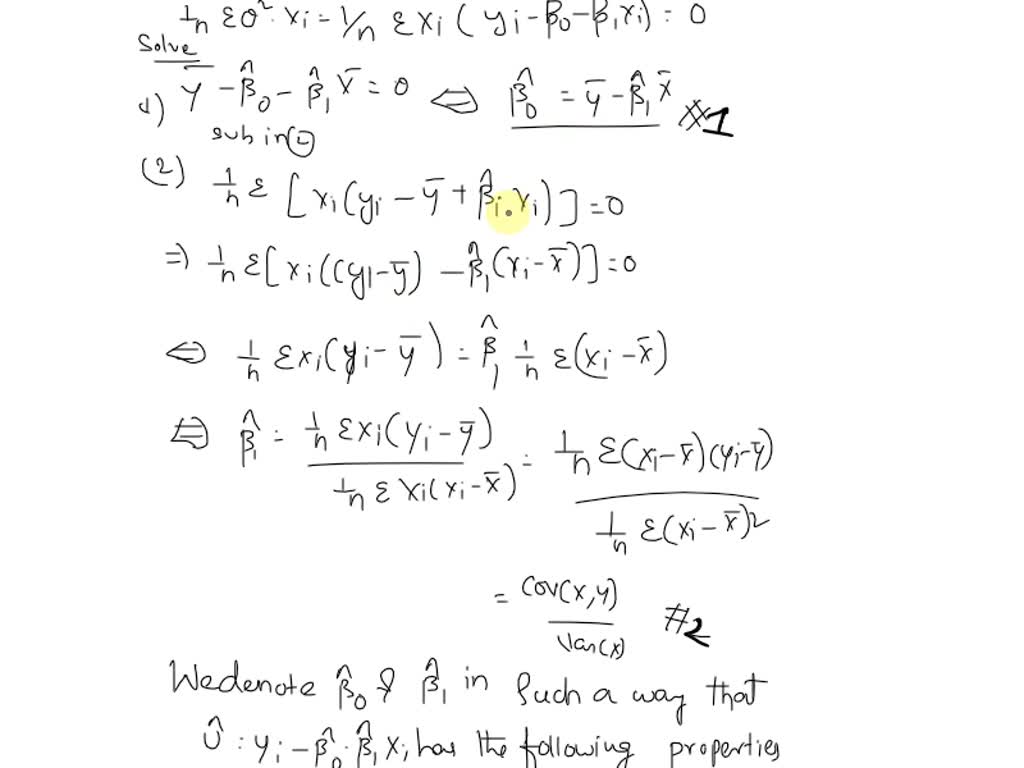 1/n Σ û · xi = 1/n Σ xi ( yi - β̂0 - β̂1 xi) = 0
Solve
1) ȳ - β̂0 - β̂1 x̄ = 0 ⇔ β̂0 = ȳ - β̂1 x̄ #1
sub in (2)
(2) 1/n Σ [ xi (yi - ȳ + β̂i . xi) ] = 0
⇒ 1/n Σ [ xi ((yi - ȳ) - β̂1 (xi - x̄)) ] = 0
⇔ 1/n Σ xi (yi - ȳ) = β̂1 1/n Σ (xi - x̄)
⇔ β̂1 = 1/n Σ xi (yi - ȳ) / 1/n Σ xi (xi - x̄) = 1/n Σ (xi - x̄)(yi - ȳ) / 1/n Σ (xi - x̄)2
= Cov(x,y) / Var(x) #2
We denote β̂0 & β̂1 in such a way that
Û : yi - β̂0 · β̂1 xi has the following properties